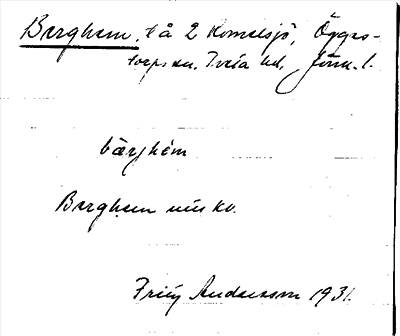 Berghem, å 2 Komelsjö, Öggest-
torps sn. Tveta hd, Jönk. l.
bärjhem
Berghem
Andersson 1931.